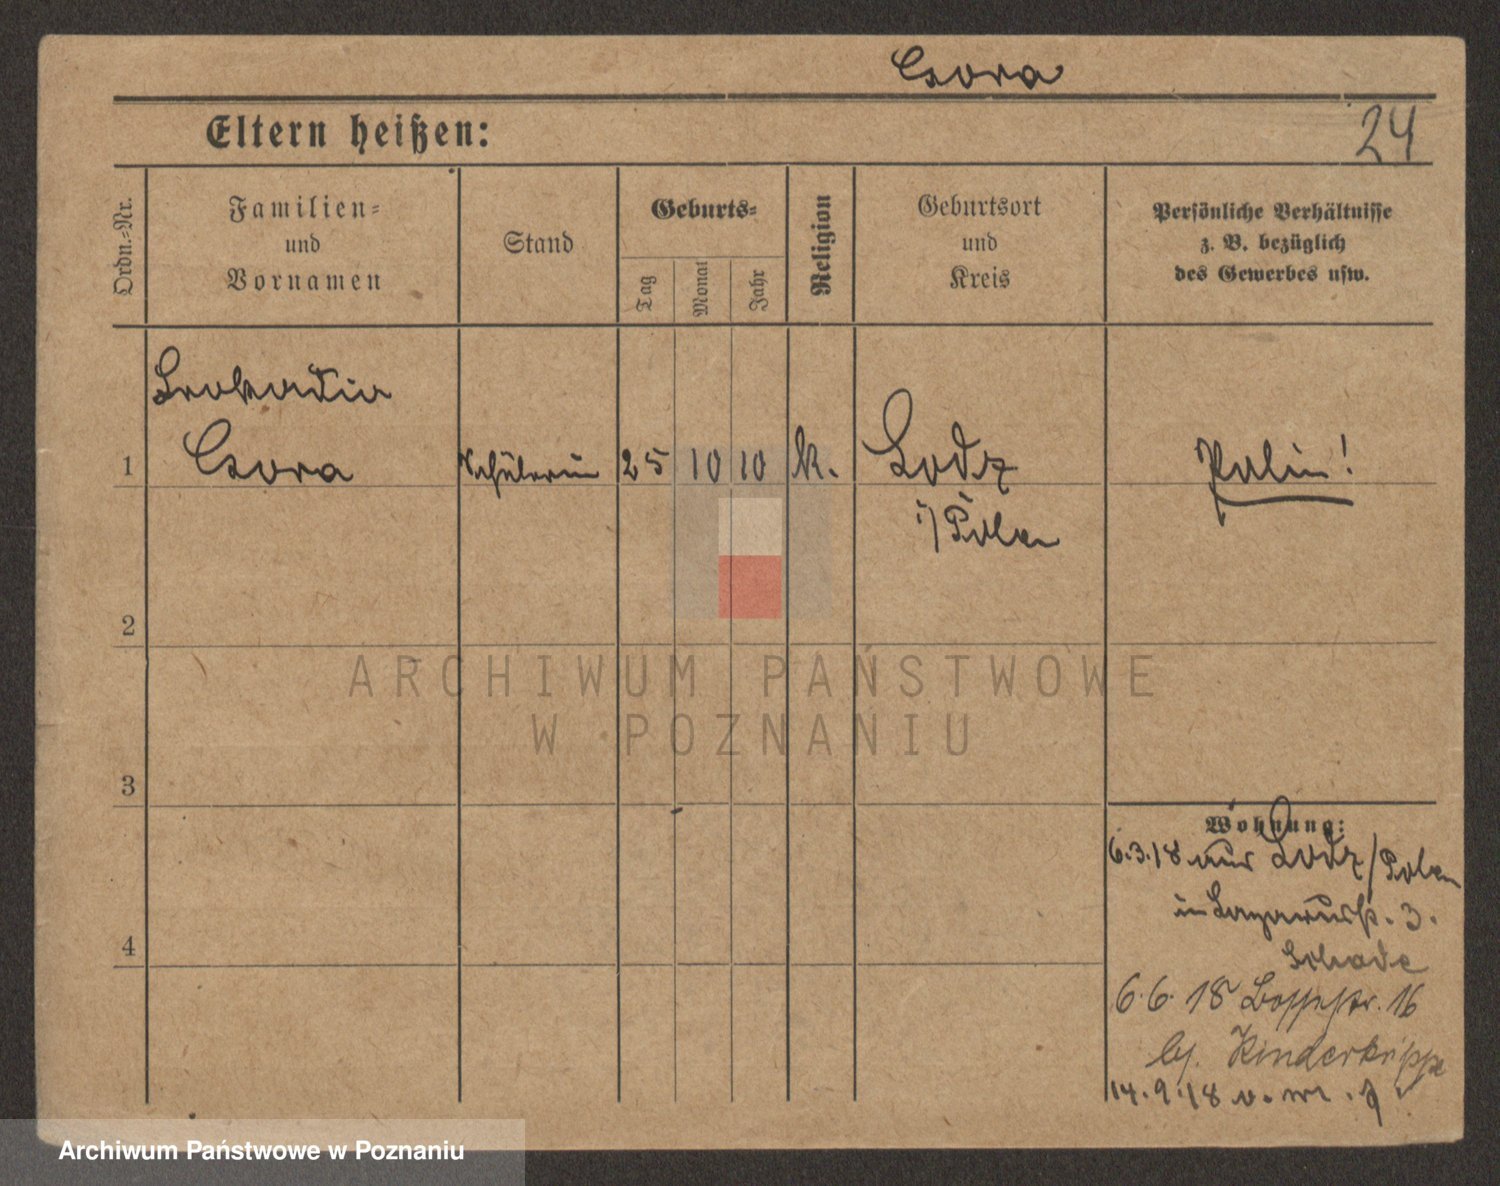 Csora
Eltern heißen:
24
Ordn.-Nr.
Familien-
und
Vornamen
Stand
Geburts-
Tag
Monat
Jahr
Religion
Geburtsort
und
Kreis
Persönliche Verhältnisse
z. B. bezüglich
des Gewerbes usw.
Leokadia
1 Csora Schülerin 25 10 10 k. Lodz Polin!
i/Polen
2
3
4
Wohnung:
6.3.18 aus Lodz/Polen
in Lazarusstr. 3.
6.6.18 Bosestr. 16
b/. Kinderkrippe
14.9.18 v. m.
ARCHIWUM PAŃSTWOWE
W POZNANIU
Archiwum Państwowe w Poznaniu